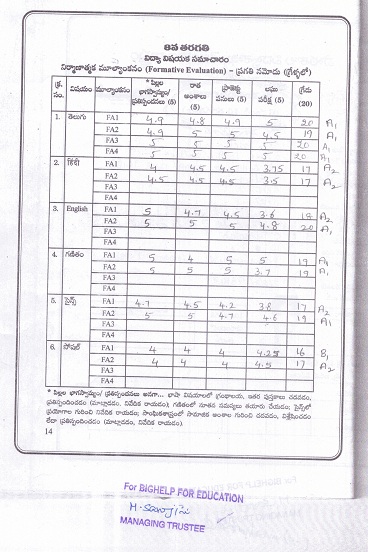 8వ తరగతి
విద్యా విషయక సమాచారం
నిర్మాణాత్మక మూల్యాంకనం (Formative Evaluation) – ప్రగతి నమోదు (గ్రేళ్ళలో)
క్ర. సం. విషయం మూల్యాంకనం * పిల్లల భాగస్వామ్యం/ ప్రతిస్పందనలు (5) రాత అంశాలు (5) ప్రాజెక్టు పనులు (5) లఘు పరీక్ష (5) గ్రేడు (20)
1. తెలుగు FA1 4.9 4.8 4.9 5 20 A1
FA2 4.9 5 5 4.5 19 A1
FA3 5 5 5 5 20 A1
FA4 5 5 5 5 20 A1
2. हिंदी FA1 4 4.5 4.5 3.75 17 A2
FA2 4.5 4.5 4.5 3.5 17 A2
FA3
FA4
3. English FA1 5 4.7 4.5 3.6 18 A2
FA2 5 5 5 4.8 20 A1
FA3
FA4
4. గణితం FA1 5 4 5 5 19 A1
FA2 5 5 5 3.7 19 A1
FA3
FA4
5. సైన్స్ FA1 4.7 4.5 4.2 3.8 17 A2
FA2 5 5 4.7 4.6 19 A1
FA3
FA4
6. సోషల్ FA1 4 4 4 4.25 16 B1
FA2 4 4 4 4.5 17 A2
FA3
FA4
* పిల్లల భాగస్వామ్యం/ ప్రతిస్పందనలు అనగా... భాషా విషయాలలో గ్రంథాలయ, ఇతర పుస్తకాలు చదవడం,
ప్రతిస్పందించడం (మాట్లాడడం, నివేదిక రాయడం); గణితంలో నూతన సమస్యలు తయారు చేయడం; సైన్సులో
ప్రయోగాల గురించి నివేదిక రాయడం; సాంఘికశాస్త్రంలో సామాజిక అంశాల గురించి చదవడం, విశ్లేషించడం
లేదా ప్రతిస్పందించడం (మాట్లాడడం, నివేదిక రాయడం).
14
For BIGHELP FOR EDUCATION
MANAGING TRUSTEE